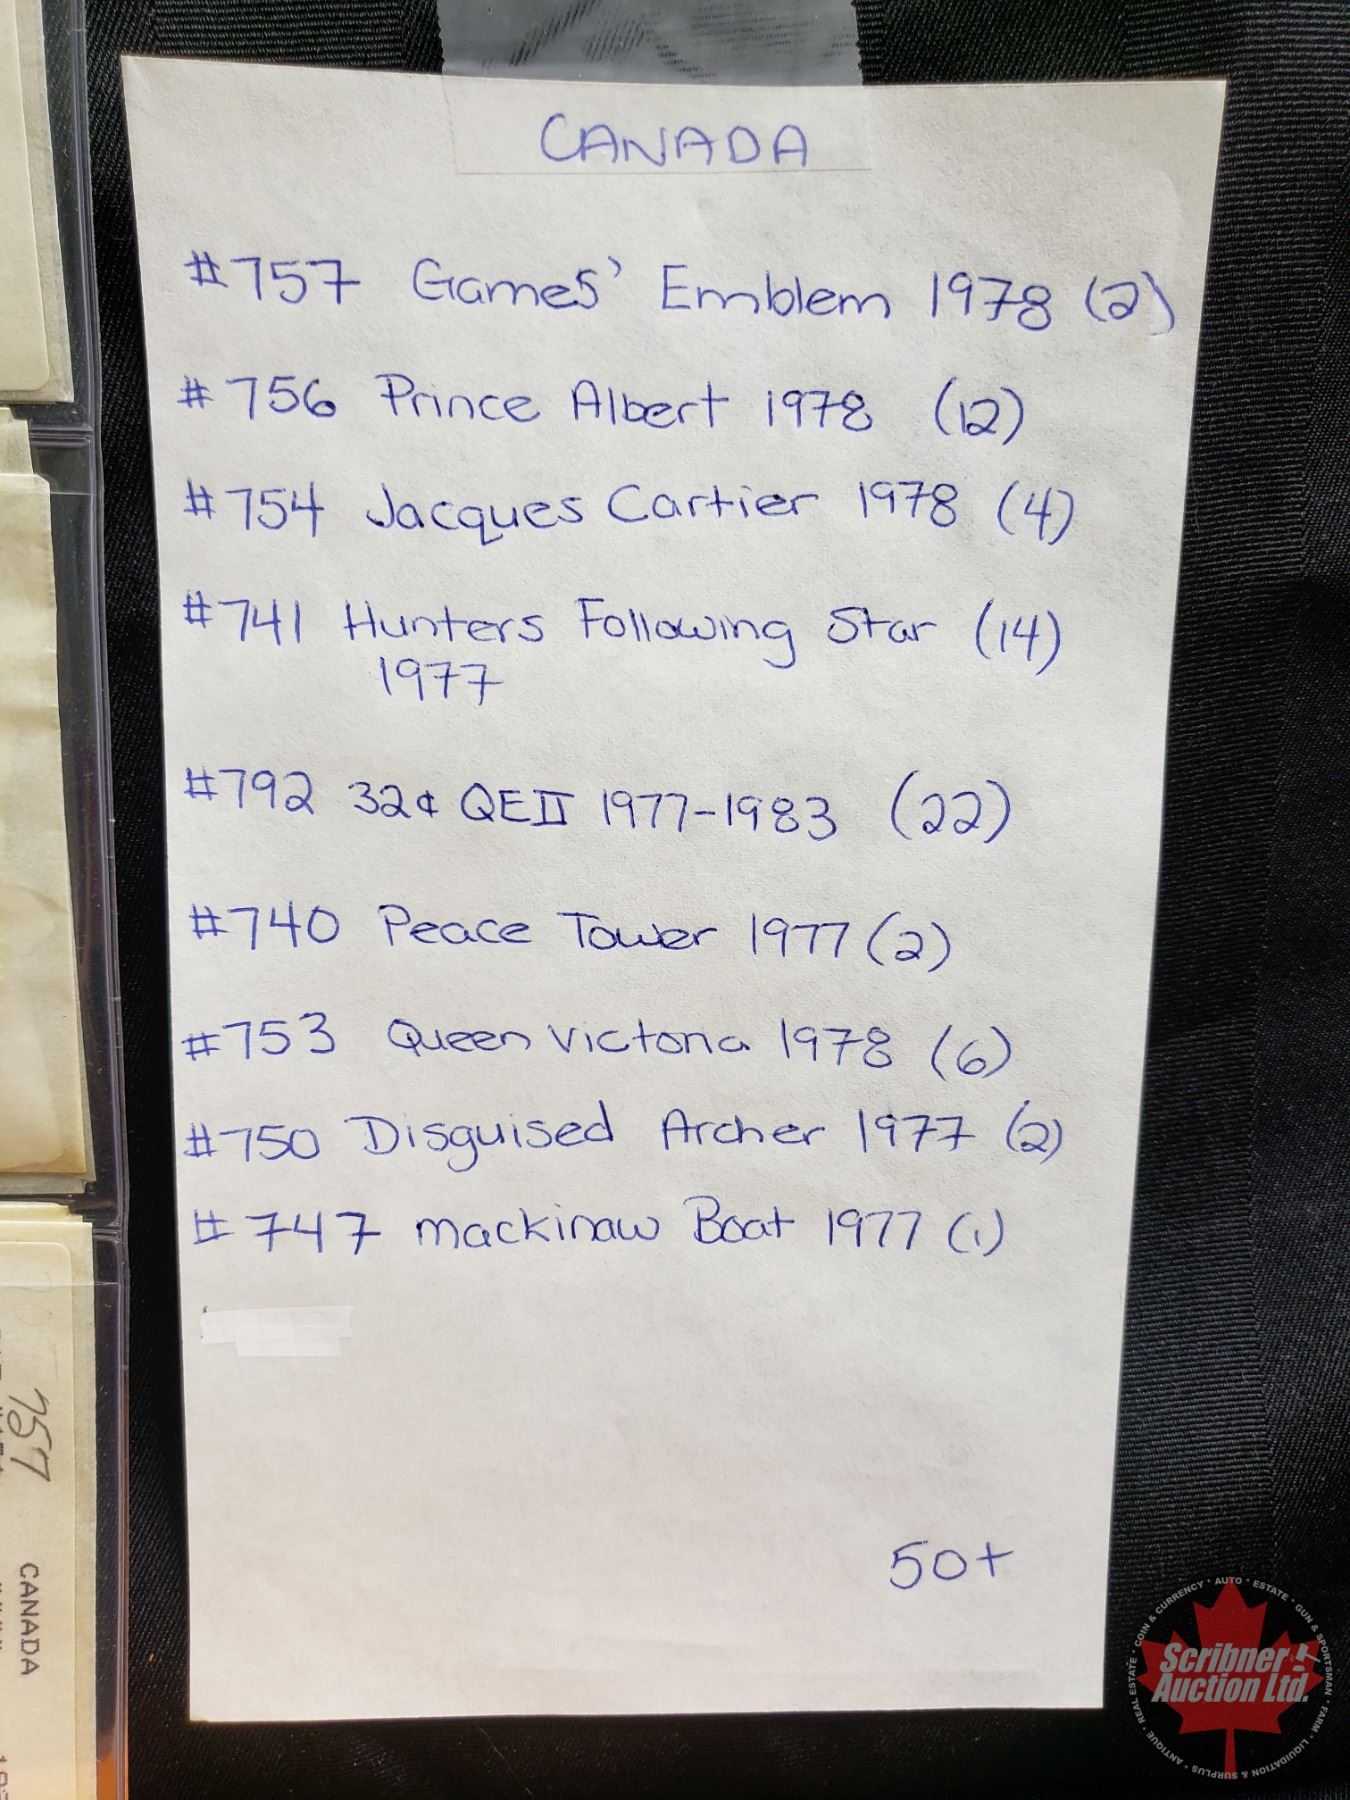 CANADA
#757 Games' Emblem 1978 (2)
# 756 Prince Albert 1978 (12)
#754 Jacques Cartier 1978 (4)
#741 Hunters Following Star (14)
1977
#792 32¢ QEII 1977-1983 (22)
#740 Peace Tower 1977 (2)
#753 Queen Victoria 1978 (6)
#750 Disguised Archer 1977 (2)
# 747 mackinaw Boat 1977 (1)
50+
757
CANADA
Scribner
Auction Ltd.
REAL ESTATE • COIN & CURRENCY • AUTO • ESTATE • GUN & SPORTSMAN • FARM • LIQUIDATION & SURPLUS • ANTIQUE •